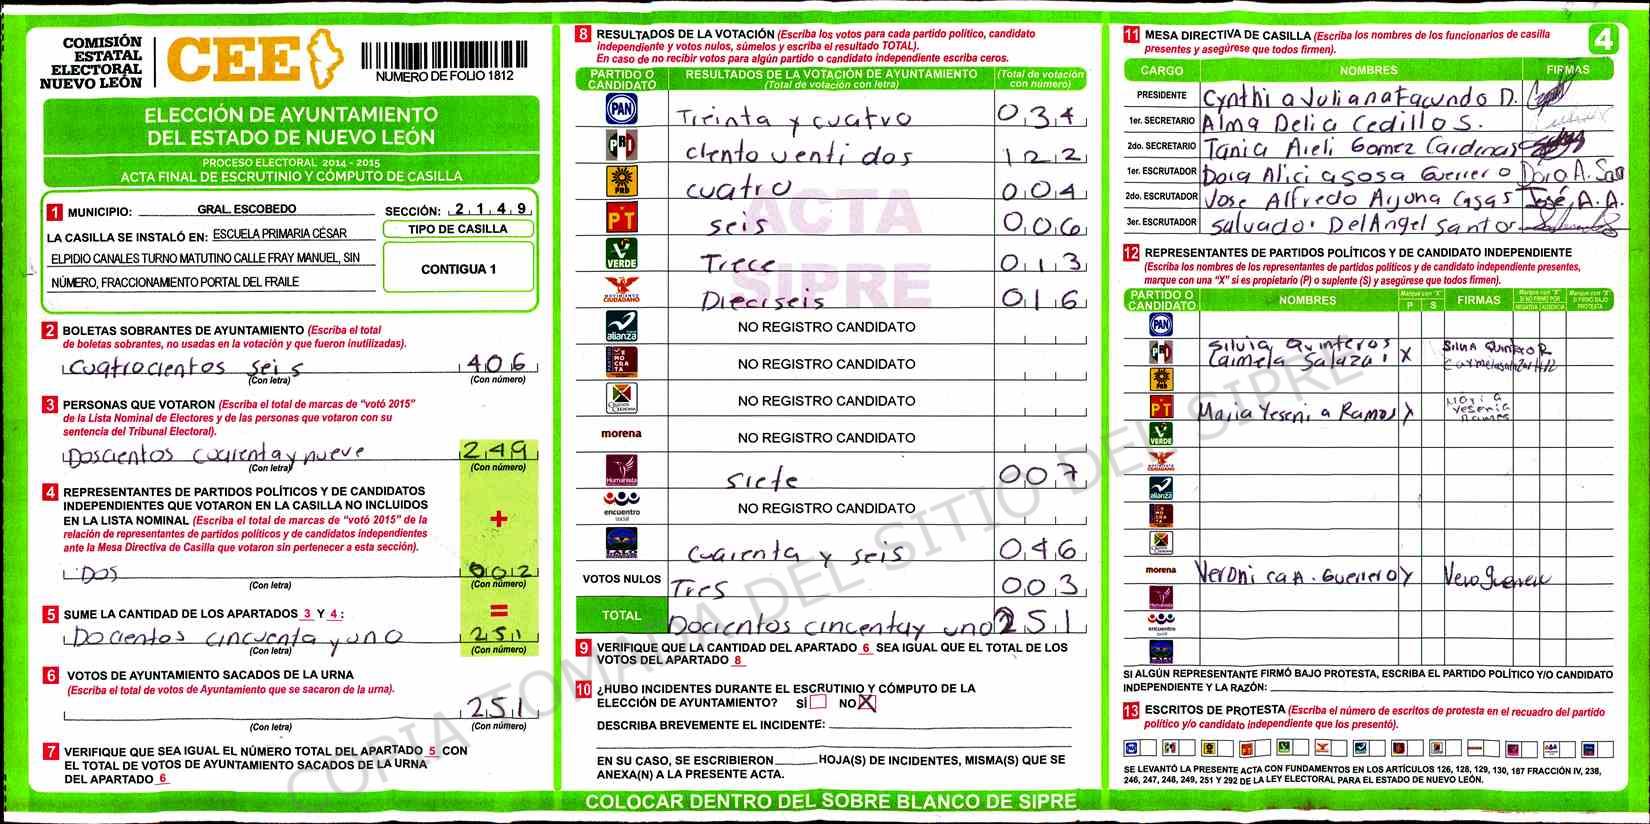 COMISIÓN
ESTATAL
ELECTORAL
NUEVO LEÓN
CEE
NUMERO DE FOLIO 1812
ELECCIÓN DE AYUNTAMIENTO
DEL ESTADO DE NUEVO LEÓN
PROCESO ELECTORAL 2014 - 2015
ACTA FINAL DE ESCRUTINIO Y CÓMPUTO DE CASILLA
1 MUNICIPIO: GRAL. ESCOBEDO SECCIÓN: 2149
LA CASILLA SE INSTALÓ EN: ESCUELA PRIMARIA CÉSAR
ELPIDIO CANALES TURNO MATUTINO CALLE FRAY MANUEL, SIN
NÚMERO, FRACCIONAMIENTO PORTAL DEL FRAILE
TIPO DE CASILLA
CONTIGUA 1
2 BOLETAS SOBRANTES DE AYUNTAMIENTO (Escriba el total
de boletas sobrantes, no usadas en la votación y que fueron inutilizadas).
Cuatrocientos seis 406
(Con letra) (Con número)
3 PERSONAS QUE VOTARON (Escriba el total de marcas de “votó 2015”
de la Lista Nominal de Electores y de las personas que votaron con su
sentencia del Tribunal Electoral).
Doscientos cuarenta y nueve 249
(Con letra) (Con número)
4 REPRESENTANTES DE PARTIDOS POLÍTICOS Y DE CANDIDATOS
INDEPENDIENTES QUE VOTARON EN LA CASILLA NO INCLUIDOS
EN LA LISTA NOMINAL (Escriba el total de marcas de “votó 2015” de la
relación de representantes de partidos políticos y de candidatos independientes
ante la Mesa Directiva de Casilla que votaron sin pertenecer a esta sección).
+
DOS 002
(Con letra) (Con número)
=
5 SUME LA CANTIDAD DE LOS APARTADOS 3 Y 4:
Docientos cincuenta y uno 251
(Con letra) (Con número)
6 VOTOS DE AYUNTAMIENTO SACADOS DE LA URNA
(Escriba el total de votos de Ayuntamiento que se sacaron de la urna).
251
(Con letra) (Con número)
7 VERIFIQUE QUE SEA IGUAL EL NÚMERO TOTAL DEL APARTADO 5 CON
EL TOTAL DE VOTOS DE AYUNTAMIENTO SACADOS DE LA URNA
DEL APARTADO 6
8 RESULTADOS DE LA VOTACIÓN (Escriba los votos para cada partido político, candidato
independiente y votos nulos, súmelos y escriba el resultado TOTAL).
En caso de no recibir votos para algún partido o candidato independiente escriba ceros.
PARTIDO O CANDIDATO RESULTADOS DE LA VOTACIÓN DE AYUNTAMIENTO (Total de votación con letra) (Total de votación con número)
PAN Treinta y cuatro 034
PRD ciento venti dos 122
PRD cuatro 004
PT seis 006
VERDE Trece 013
MOVIMIENTO CIUDADANO Dieciseis 016
alianza NO REGISTRO CANDIDATO
DEMÓCRATA NO REGISTRO CANDIDATO
NO REGISTRO CANDIDATO
morena NO REGISTRO CANDIDATO
Humanista siete 007
encuentro social NO REGISTRO CANDIDATO
cuarenta y seis 046
VOTOS NULOS Tres 003
TOTAL Docientos cincentay uno 251
ACTA
SIPRE
COPIA TOMADA DEL SITIO DEL SIPRE
9 VERIFIQUE QUE LA CANTIDAD DEL APARTADO 6 SEA IGUAL QUE EL TOTAL DE LOS
VOTOS DEL APARTADO 8
10 ¿HUBO INCIDENTES DURANTE EL ESCRUTINIO Y CÓMPUTO DE LA
ELECCIÓN DE AYUNTAMIENTO? SÍ NO X
DESCRIBA BREVEMENTE EL INCIDENTE:
EN SU CASO, SE ESCRIBIERON HOJA(S) DE INCIDENTES, MISMA(S) QUE SE
ANEXA(N) A LA PRESENTE ACTA.
COLOCAR DENTRO DEL SOBRE BLANCO DE SIPRE
11 MESA DIRECTIVA DE CASILLA (Escriba los nombres de los funcionarios de casilla
presentes y asegúrese que todos firmen).
4
CARGO NOMBRES FIRMAS
PRESIDENTE Cynthia Juliana Facundo D.
1er. SECRETARIO Alma Delia Cedillo S.
2do. SECRETARIO Tania Areli Gomez Cardenas
1er. ESCRUTADOR Dora Alicia Sosa Guerrero Dora A. Sosa
2do. ESCRUTADOR Jose Alfredo Arjona Casas José A. A.
3er. ESCRUTADOR Salvador Del Angel Santos
12 REPRESENTANTES DE PARTIDOS POLÍTICOS Y DE CANDIDATO INDEPENDIENTE
(Escriba los nombres de los representantes de partidos políticos y de candidato independiente presentes,
marque con una “X” si es propietario (P) o suplente (S) y asegúrese que todos firmen).
PARTIDO O CANDIDATO NOMBRES Marque con "X" P S FIRMAS Marque con "X" SI NO FIRMÓ POR NEGATIVA AUSENCIA Marque con "X" SI FIRMÓ BAJO PROTESTA
PAN
Silvia Quinteros SILVIA QUINTERO R
PRI Carmela Salazar X
PRD
PT Maria Yesenia Ramos X Maria Yesenia Ramos
VERDE
alianza
morena Veronica A. Guerrero Vero Guerrero
Humanista
encuentro social
SI ALGÚN REPRESENTANTE FIRMÓ BAJO PROTESTA, ESCRIBA EL PARTIDO POLÍTICO Y/O CANDIDATO
INDEPENDIENTE Y LA RAZÓN:
13 ESCRITOS DE PROTESTA (Escriba el número de escritos de protesta en el recuadro del partido
político y/o candidato independiente que los presentó).
SE LEVANTÓ LA PRESENTE ACTA CON FUNDAMENTOS EN LOS ARTÍCULOS 126, 128, 129, 130, 187 FRACCIÓN IV, 238,
246, 247, 248, 249, 251 Y 292 DE LA LEY ELECTORAL PARA EL ESTADO DE NUEVO LEÓN.